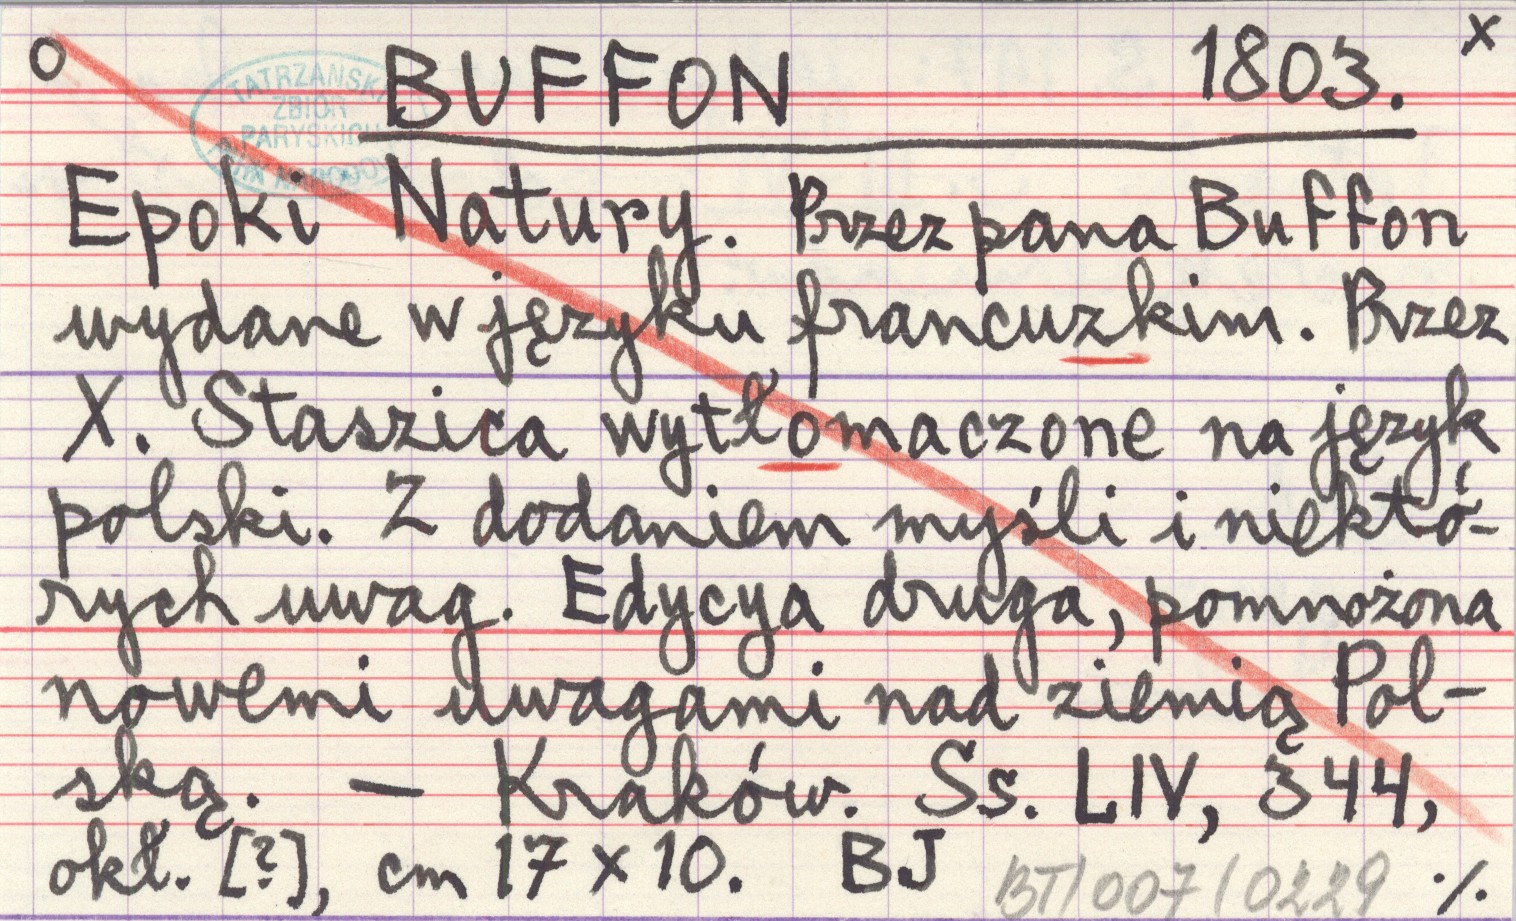 o BUFFON 1803. x
TATRZAŃSKI
ZBIÓR
PARYSKICH
Epoki Natury. Przez pana Buffon
wydane w języku francuzkim. Przez
X. Staszica wytłomaczone na język
polski. Z dodaniem myśli i niektó-
rych uwag. Edycya druga, pomnożona
nowemi uwagami nad ziemią Pol-
ską. — Kraków. Ss. LIV, 344,
okł. [?], cm 17 x 10. BJ BT/007/0229 ./.